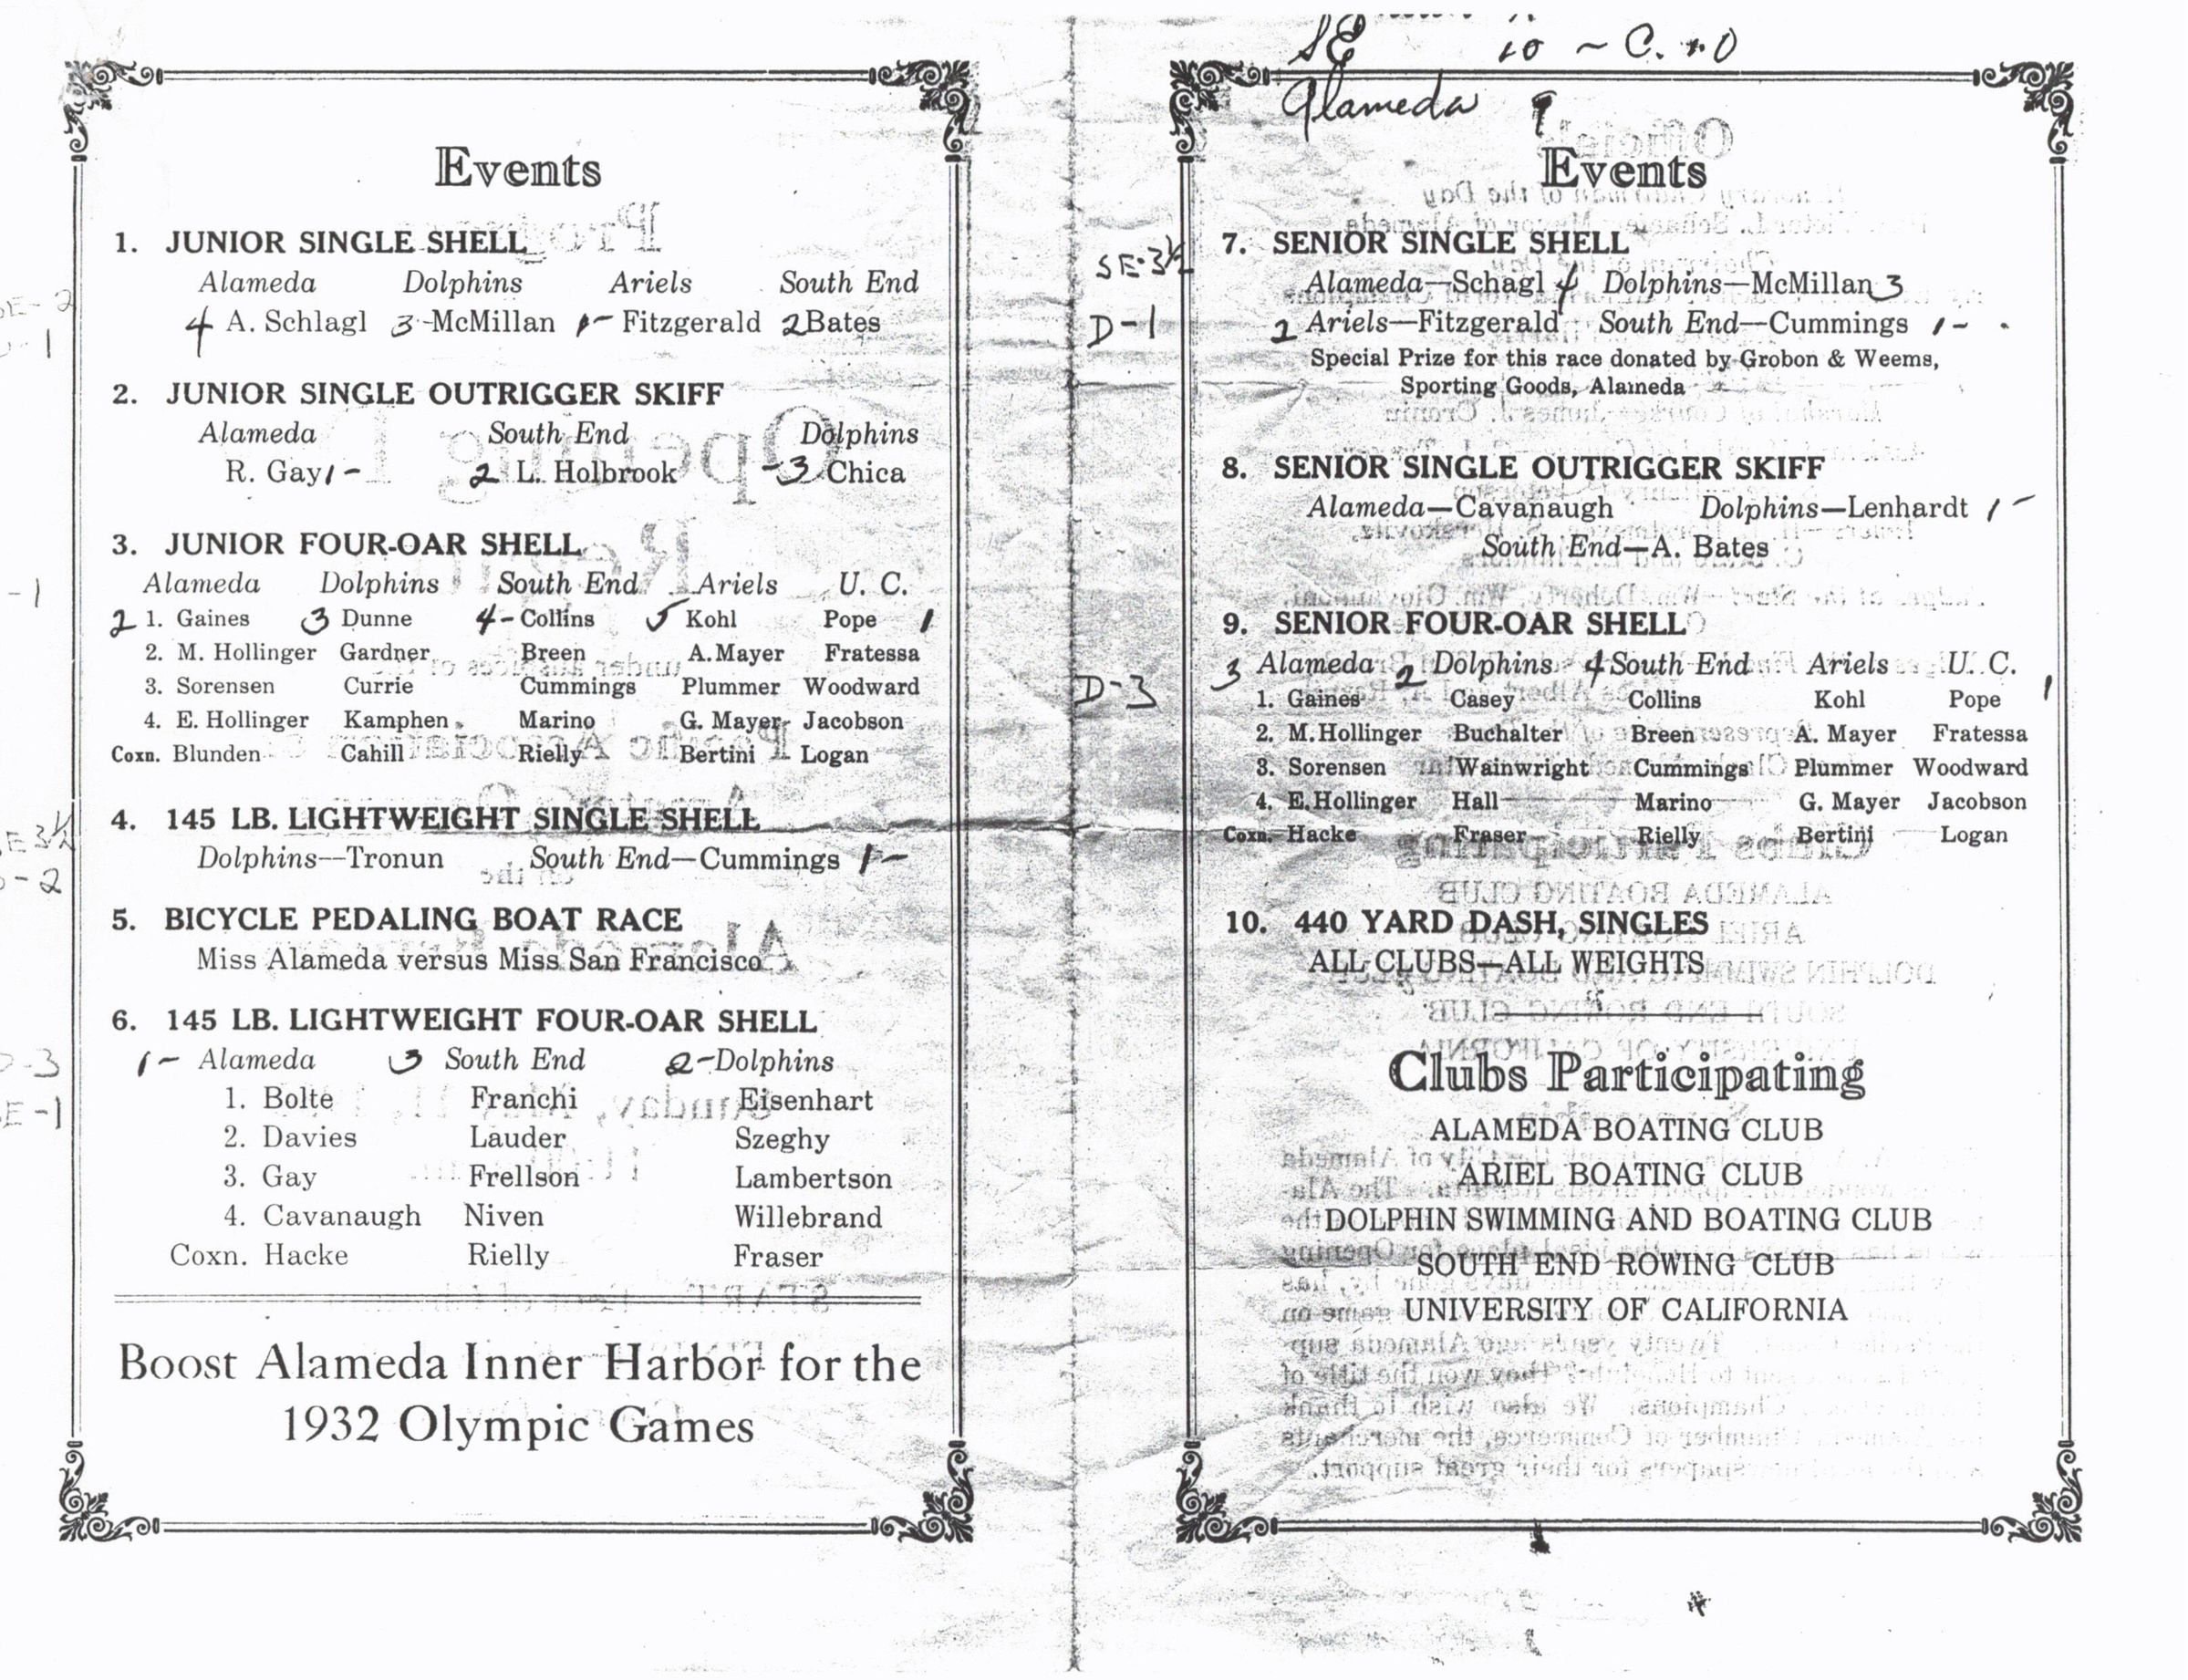 Events
1. JUNIOR SINGLE SHELL
Alameda Dolphins Ariels South End
4 A. Schlagl 3 -McMillan 1- Fitzgerald 2 Bates
2. JUNIOR SINGLE OUTRIGGER SKIFF
Alameda South End Dolphins
R. Gay 1- 2 L. Holbrook -3 Chica
3. JUNIOR FOUR-OAR SHELL
Alameda Dolphins South End Ariels U. C.
2 1. Gaines 3 Dunne 4- Collins 5 Kohl Pope 1
2. M. Hollinger Gardner Breen A.Mayer Fratessa
3. Sorensen Currie Cummings Plummer Woodward
4. E. Hollinger Kamphen Marino G. Mayer Jacobson
Coxn. Blunden Cahill Rielly Bertini Logan
4. 145 LB. LIGHTWEIGHT SINGLE SHELL
Dolphins—Tronun South End—Cummings 1-
5. BICYCLE PEDALING BOAT RACE
Miss Alameda versus Miss San Francisco
6. 145 LB. LIGHTWEIGHT FOUR-OAR SHELL
1- Alameda 3 South End 2-Dolphins
1. Bolte Franchi Eisenhart
2. Davies Lauder Szeghy
3. Gay Frellson Lambertson
4. Cavanaugh Niven Willebrand
Coxn. Hacke Rielly Fraser
Boost Alameda Inner Harbor for the
1932 Olympic Games
SE 10 ~ C.
Alameda 9
Events
7. SENIOR SINGLE SHELL
SE-3½
Alameda—Schagl 4 Dolphins—McMillan 3
D-1
2 Ariels—Fitzgerald South End—Cummings 1-
Special Prize for this race donated by Grobon & Weems,
Sporting Goods, Alameda
8. SENIOR SINGLE OUTRIGGER SKIFF
Alameda—Cavanaugh Dolphins—Lenhardt 1-
South End—A. Bates
9. SENIOR FOUR-OAR SHELL
3 Alameda 2 Dolphins 4 South End Ariels U. C.
D-3
1. Gaines Casey Collins Kohl Pope 1
2. M.Hollinger Buchalter Breen A. Mayer Fratessa
3. Sorensen Wainwright Cummings Plummer Woodward
4. E.Hollinger Hall Marino G. Mayer Jacobson
Coxn. Hacke Fraser Rielly Bertini Logan
10. 440 YARD DASH, SINGLES
ALL CLUBS—ALL WEIGHTS
Clubs Participating
ALAMEDA BOATING CLUB
ARIEL BOATING CLUB
DOLPHIN SWIMMING AND BOATING CLUB
SOUTH END ROWING CLUB
UNIVERSITY OF CALIFORNIA